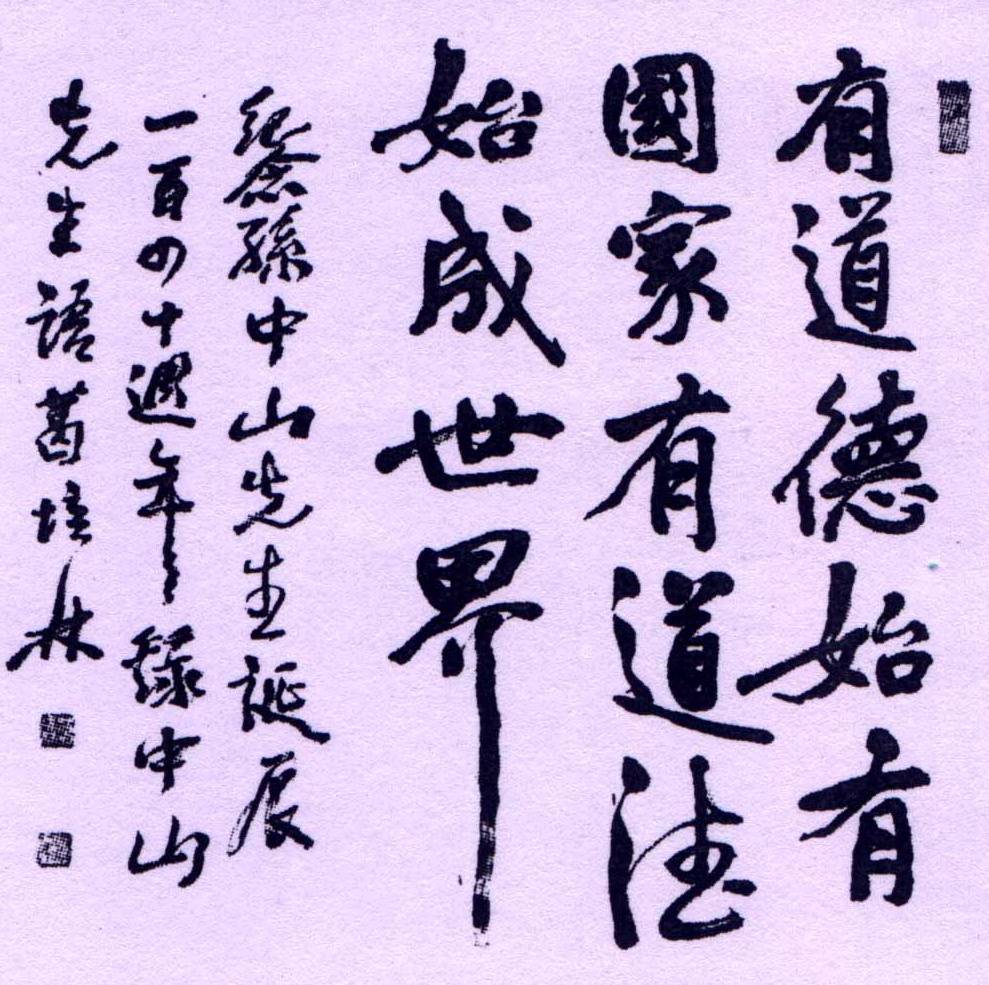 有道德始有
國家有道德
始成世界
紀念孫中山先生誕辰
一百四十週年錄中山
先生語葛培林